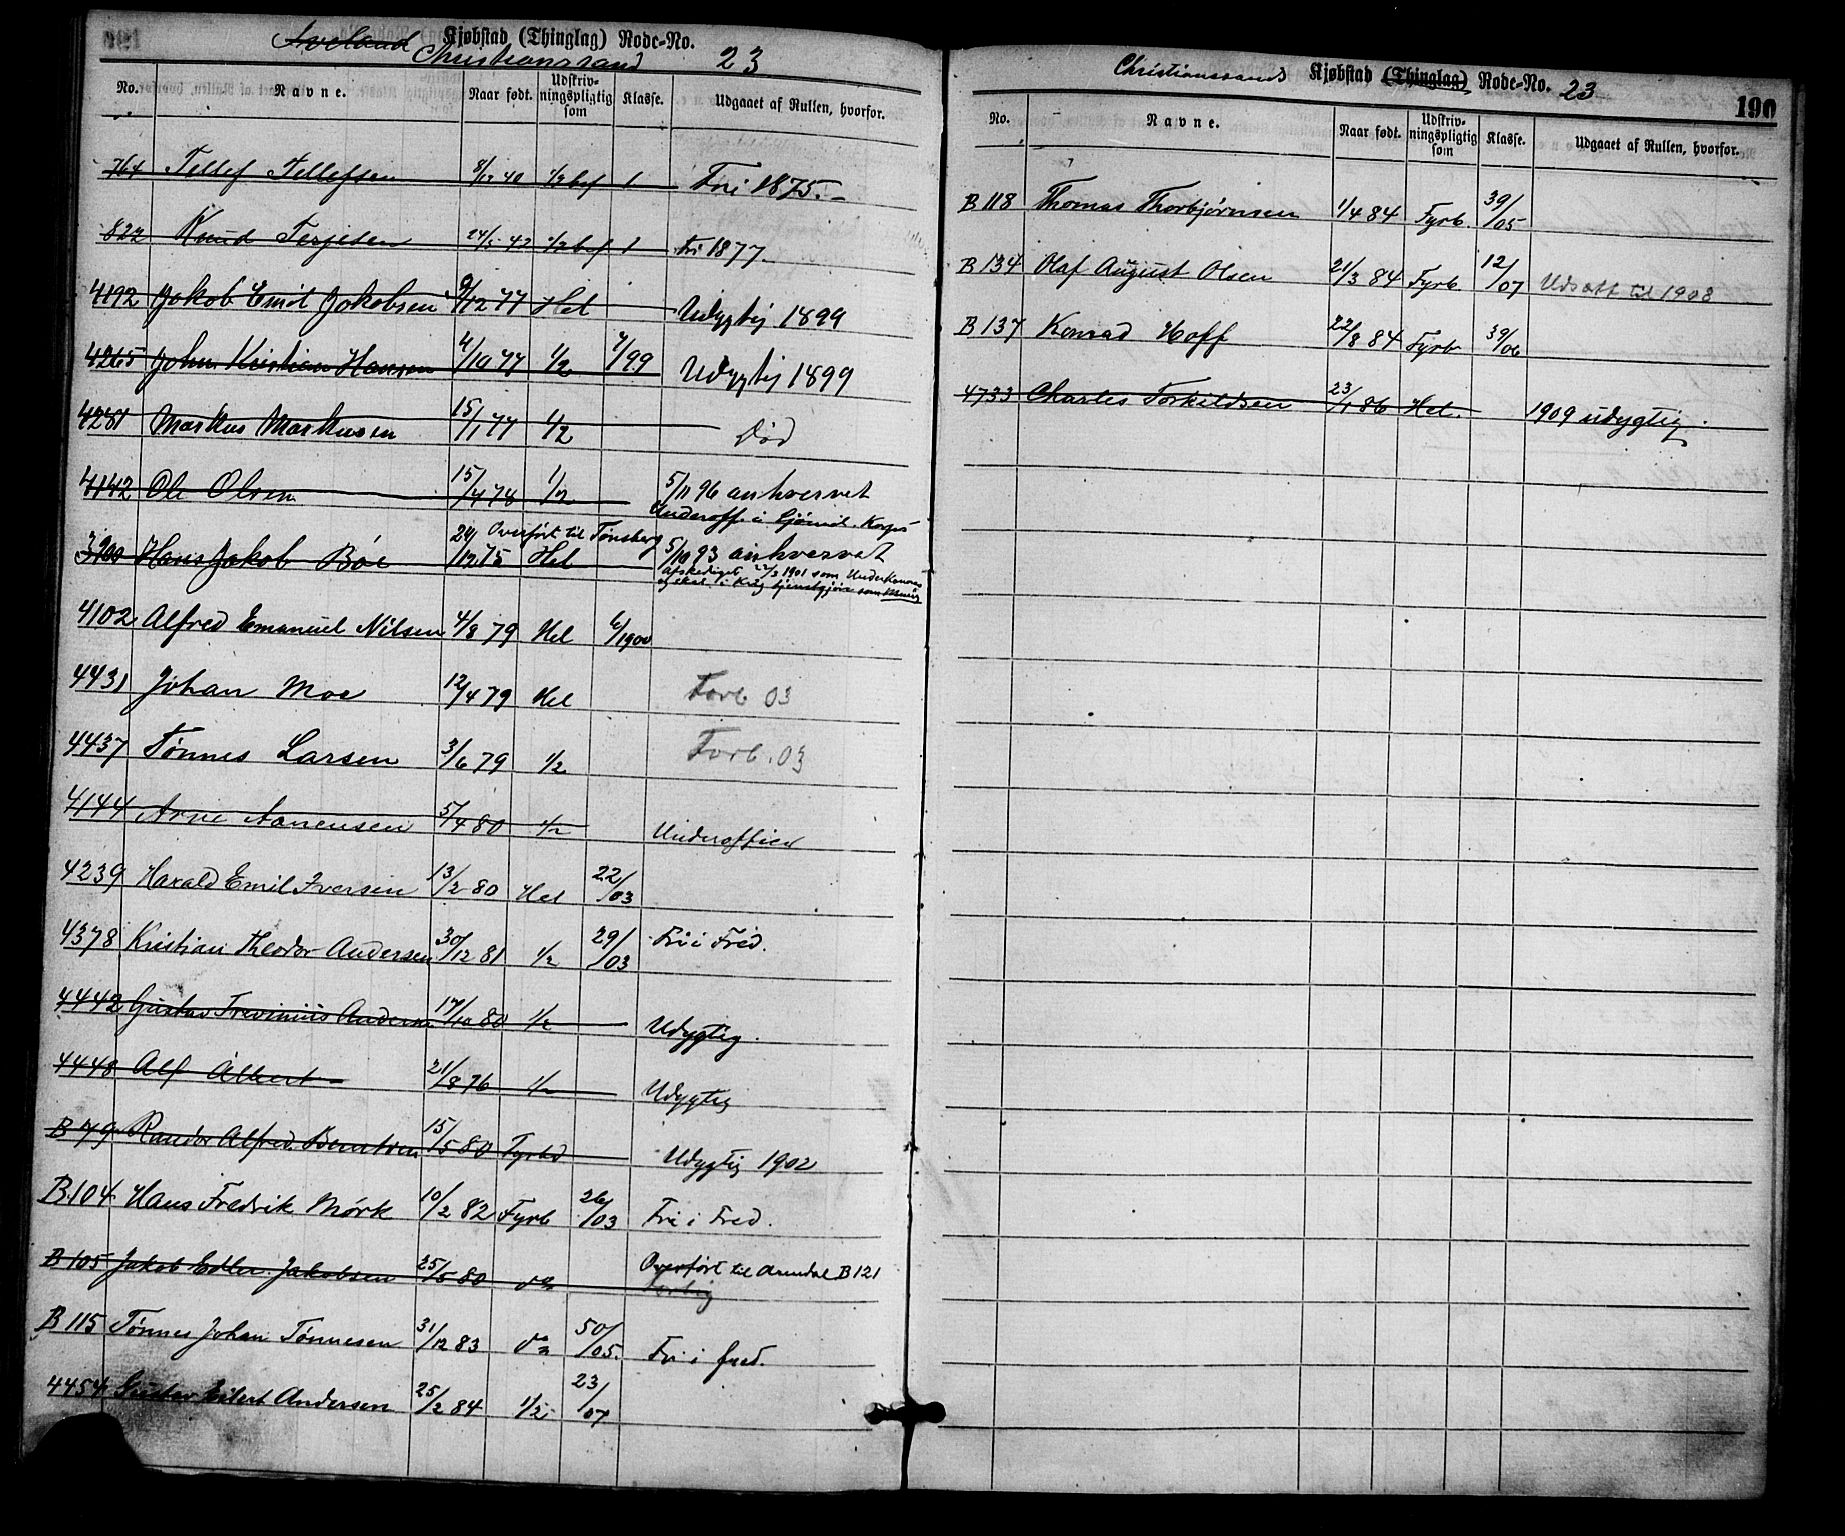 Kjøbstad (Thinglag) Rode-No. 23
Christianssand
No. Navne. Naar født. Udskriv-ningspligtig som Klasse. Udgaaet af Rullen, hvorfor.
764 Tellef Tellefsen 8/12 40 1/2 bef 1 Fri 1875.
822 Knud Terjesen 24/5 42 1/2 bef 1 Fri 1877.
4192 Jakob Emil Jakobsen 9/12 77 Hel Udygtig 1899
4265 John Kristian Hansen 4/10 77 1/2 7/99 Udygtig 1899
4281 Markus Markussen 15/1 77 1/2 Død
4142 Ole Olsen 15/4 78 1/2 5/11 96 anhvervet
Underoff. i Sjømil. Korps
Overført til Tønsberg
3900 Hans Jakob Bøe 24/12 75 Hel 5/10 93 anhvervet
afskediget 22/3 1901 som
og skal i Krig tjenstgjøre som
4102 Alfred Emanuel Nilsen 4/8 79 Hel 6/1900
4431 Johan Moe 12/4 79 Hel Forb 03
4437 Tønnes Larsen 3/6 79 1/2 Forb. 03
4144 Arne Aanensen 5/4 80 1/2 Underofficer
4239 Harald Emil Iversen 13/2 80 Hel 22/03
4378 Kristian Theodor Andersen 30/12 81 1/2 29/03 Fri i Fred.
4442 Gustav Andersen 17/10 80 1/2 Udygtig.
4448 Alf Albert 21/8 76 1/2 Udygtig
B 79 Alfred Berntsen 15/5 80 Fyrbd Udygtig 1902
B.104 Hans Fredrik Mørk 10/2 82 Fyrb 26/03 Fri i Fred.
B 105 Jakob Edler Jakobsen 25/5 80 do Overført til Arendal B 121
B 115 Tønnes Johan Tønnesen 31/12 83 do 50/05. Fri i fred.
4454 Gustav Eilert Andersen 25/2 84 1/2 23/07
Christianssands Kjøbstad (Thinglag) Rode-No. 23
190
No. Navne. Naar født. Udskriv-ningspligtig som Klasse. Udgaaet af Rullen, hvorfor.
B 118 Thomas Thorbjørnsen 1/4 84 Fyrb. 39/05
B 134 Olaf August Olsen 21/3 84 Fyrb 12/07 Udsatt til 1908
B 137 Konrad Hoff 22/8 84 Fyrb 39/06
4733 Charles Torkildsen 23/1 86 Hel. 1909 udygtig.